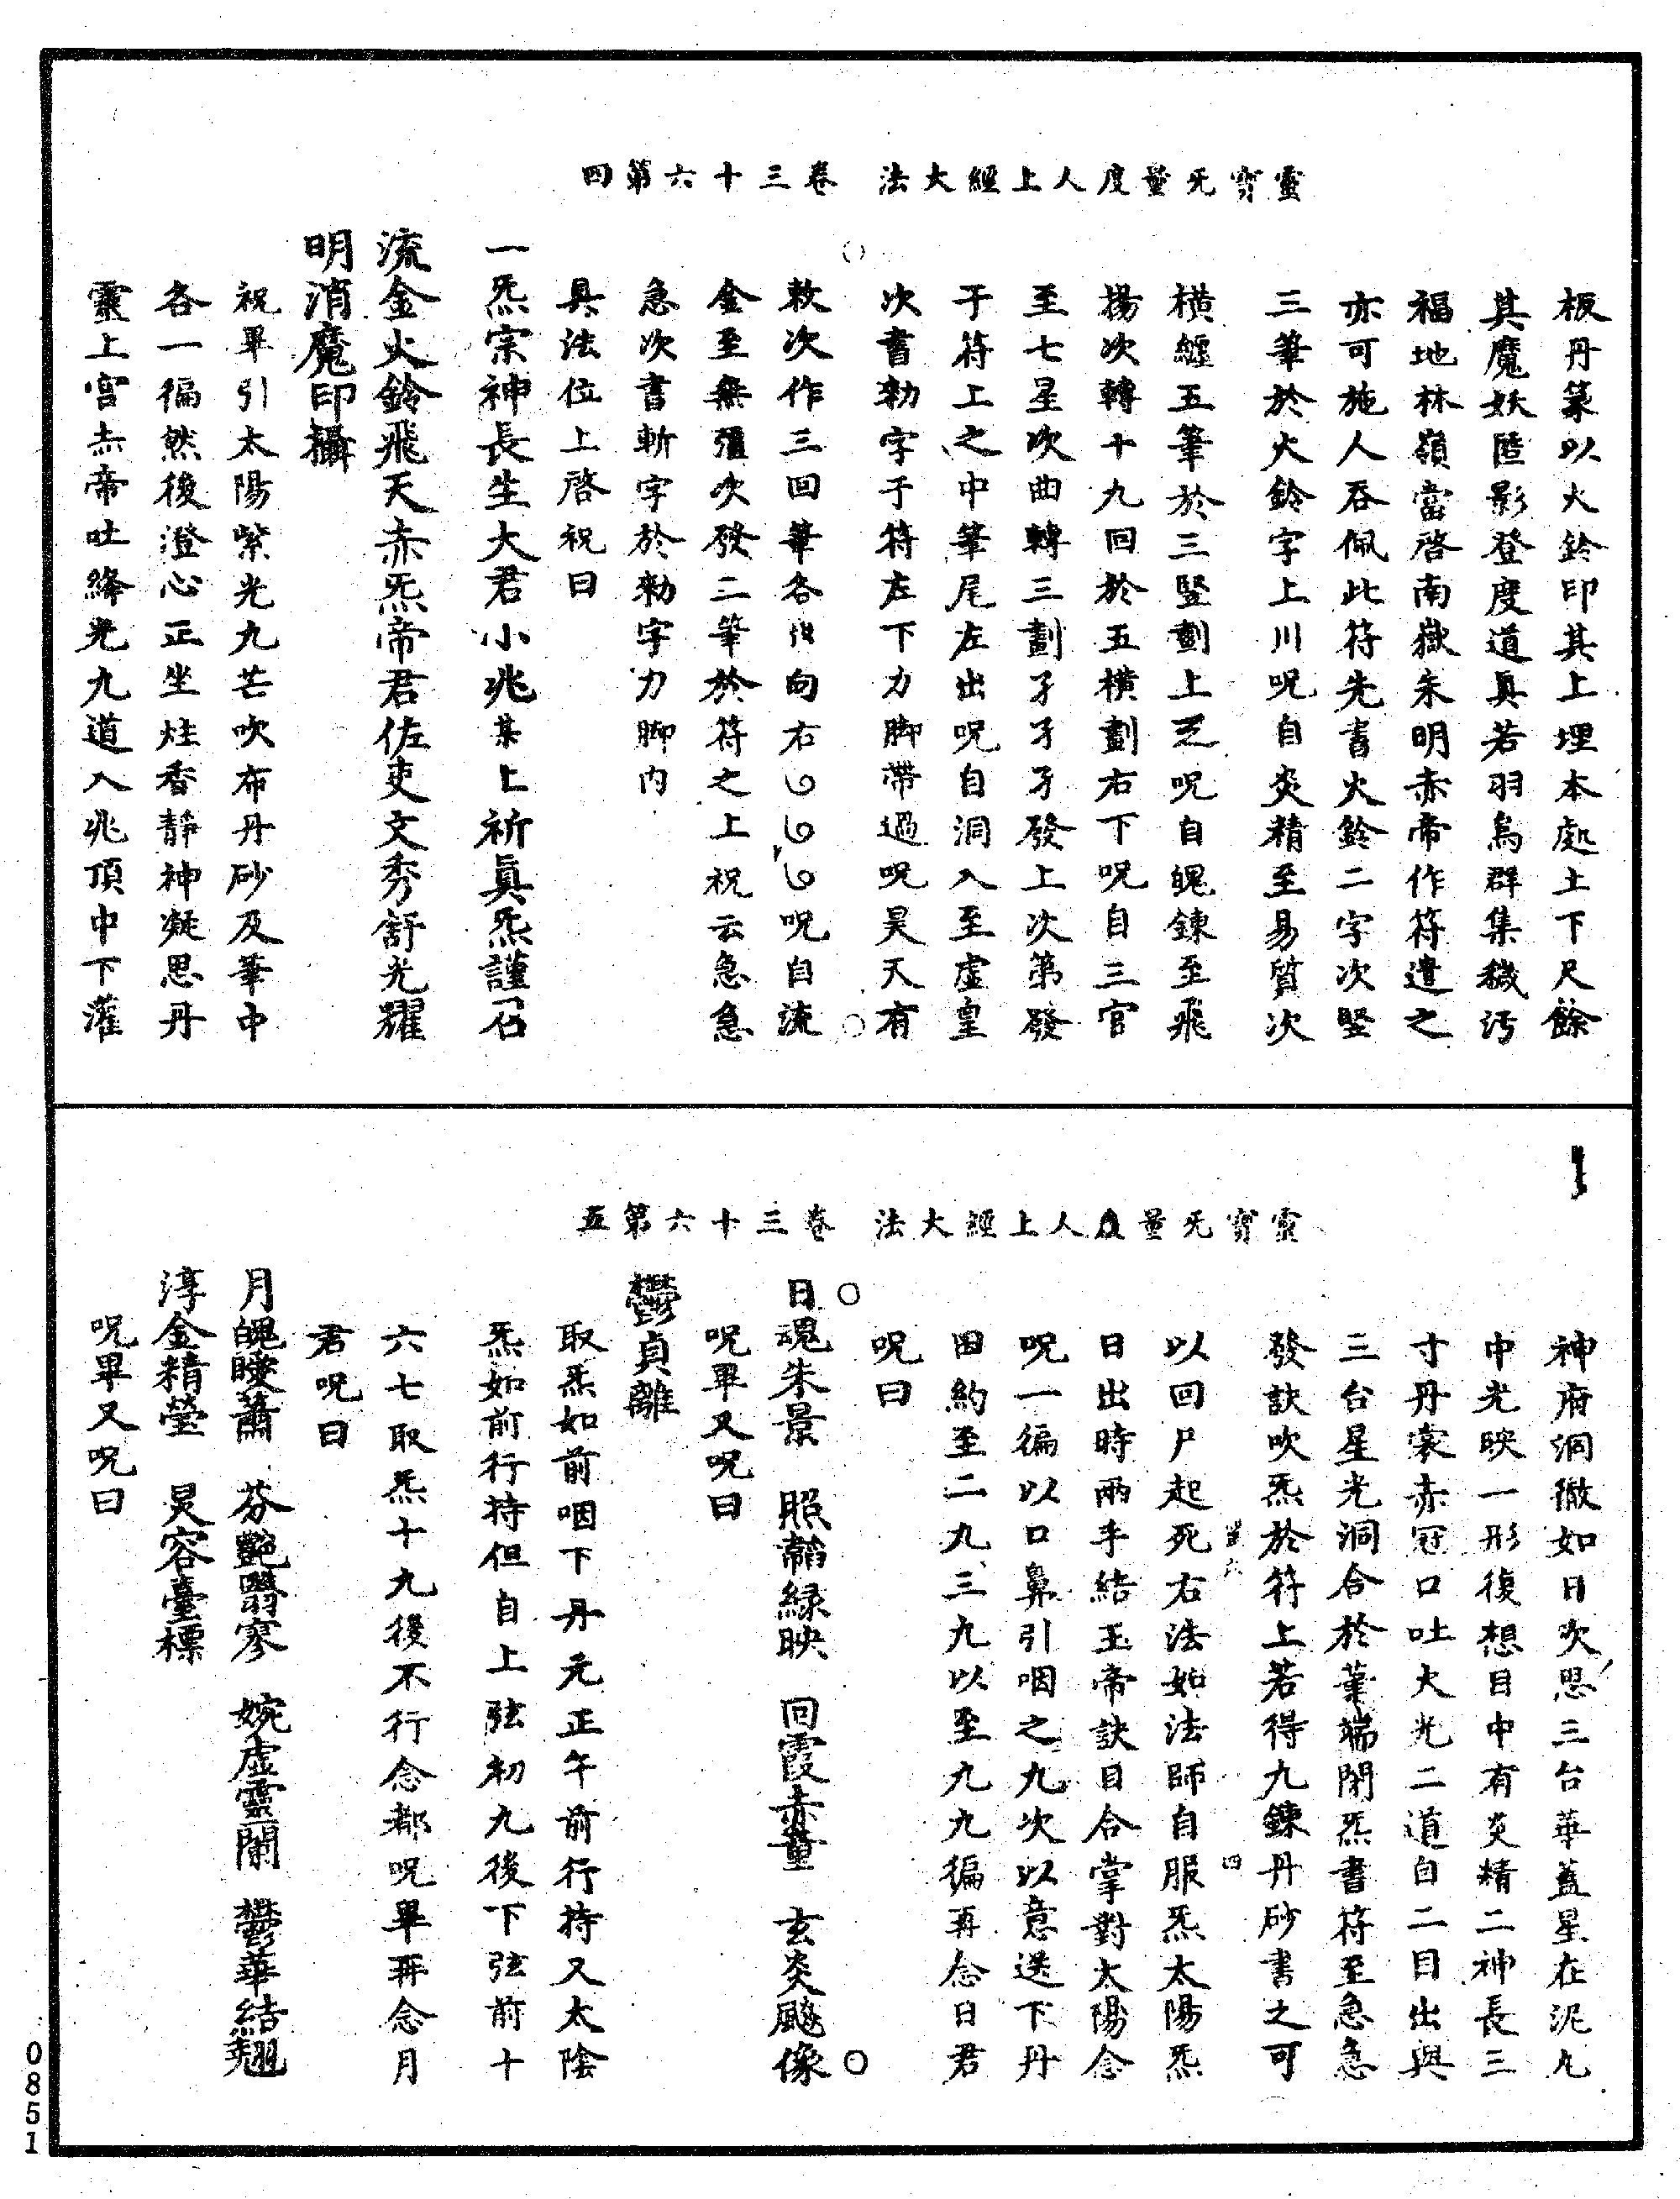 靈寳无量度人上經大法　卷三十六第四
板丹篆以火鈴印其上埋本處土下尺餘
其魔妖匿影登度道眞若羽鳥群集穢污
福地林嶺當啓南嶽朱明赤帝作符遣之
亦可施人吞佩此符先書火鈴二字次竪
三筆於火鈴字上川呪自炎精至易質次
橫纏五筆於三竪劃上呪自魄鍊至飛
揚次轉十九回於五橫劃右下呪自三官
至七星次曲轉三劃孑孑孑發上次第發
于符上之中筆尾左出呪自洞入至虛皇
次書勑字于符左下力脚帶過呪昊天有
敕次作三回筆各向右呪自流
金至無彊次發二筆於符之上祝云急急
急次書斬字於勑字力脚內
具法位上啓祝曰
一炁宗神長生大君小兆某上祈眞炁謹召
流金火鈴飛天赤炁帝君佐吏文秀舒光躍
明消魔印攝
祝畢引太陽紫光九芒吹布丹砂及筆中
各一徧然後澄心正坐炷香靜神凝思丹
靈上宮赤帝吐絳光九道入兆頂中下灌
靈寳无量度人上經大法　卷三十六第五
神府洞徹如日次思三台華蓋星在泥丸
中光映一形復想目中有炎精二神長三
寸丹裳赤冠口吐火光二道自二目出與
三台星光洞合於筆端閉炁書符至急急
發訣吹炁於符上若得九鍊丹砂書之可
以回尸起死右法如法師自服炁太陽炁
日出時兩手結玉帝訣目合掌對太陽念
呪一徧以口鼻引咽之九次以意送下丹
田約至二九三九以至九九徧再念日君
呪曰
日魂朱景　照韜緑映　回霞赤童　玄炎飈像
呪畢又呪曰
鬱貞離
取炁如前咽下丹元正午前行持又太陰
炁如前行持但自上弦初九後下弦前十
六七取炁十九後不行念都呪畢再念月
君呪曰
月魄曖蕭　芬艷翳寥　婉虛靈蘭　鬱華結翹
淳金精瑩　炅容臺標
呪畢又呪曰
0851